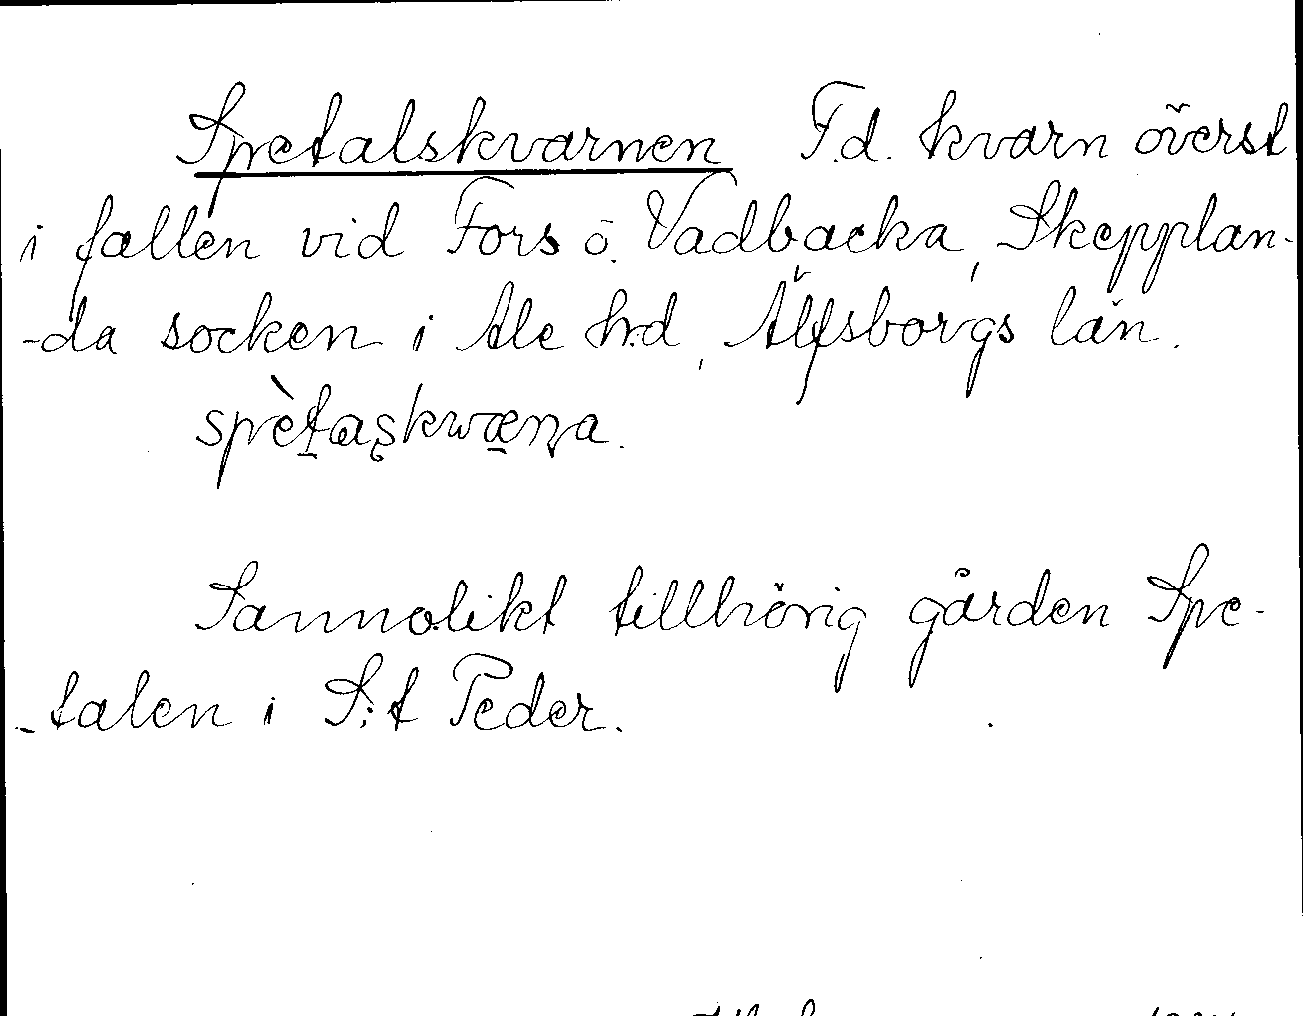 Spetalskvarnen F.d. kvarn överst
i fallen vid Fors ö. Vadbacka, Skepplan-
-da socken i Ale h:d, Älfsborgs län.
spètaskwæṇa.
Sannolikt tillhörig gården Spe-
-talen i S:t Peder.